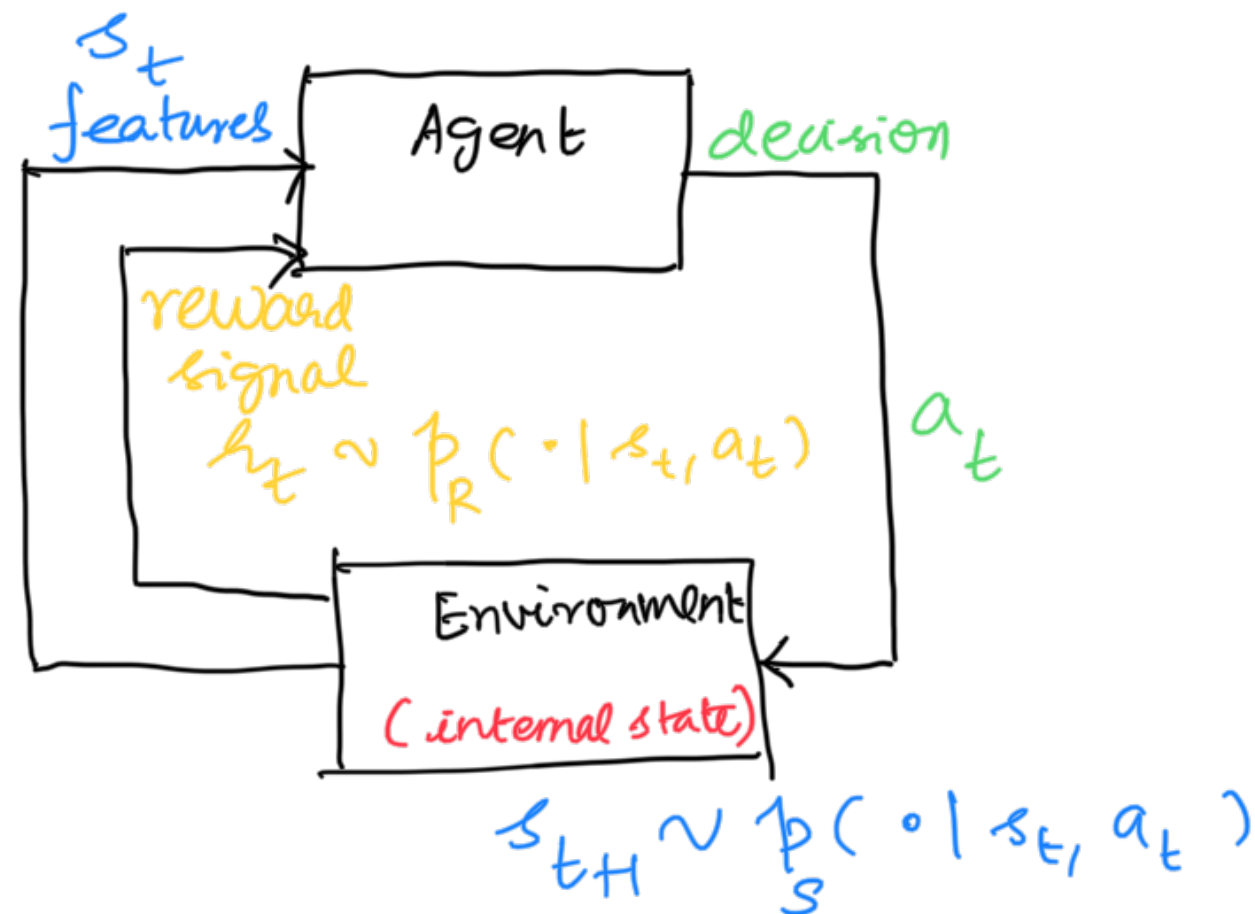 s_t
features
Agent
decision
reward
signal
r_t ~ p_R ( · | s_t, a_t )
a_t
Environment
(internal state)
s_{t+1} ~ p_s ( · | s_t, a_t )